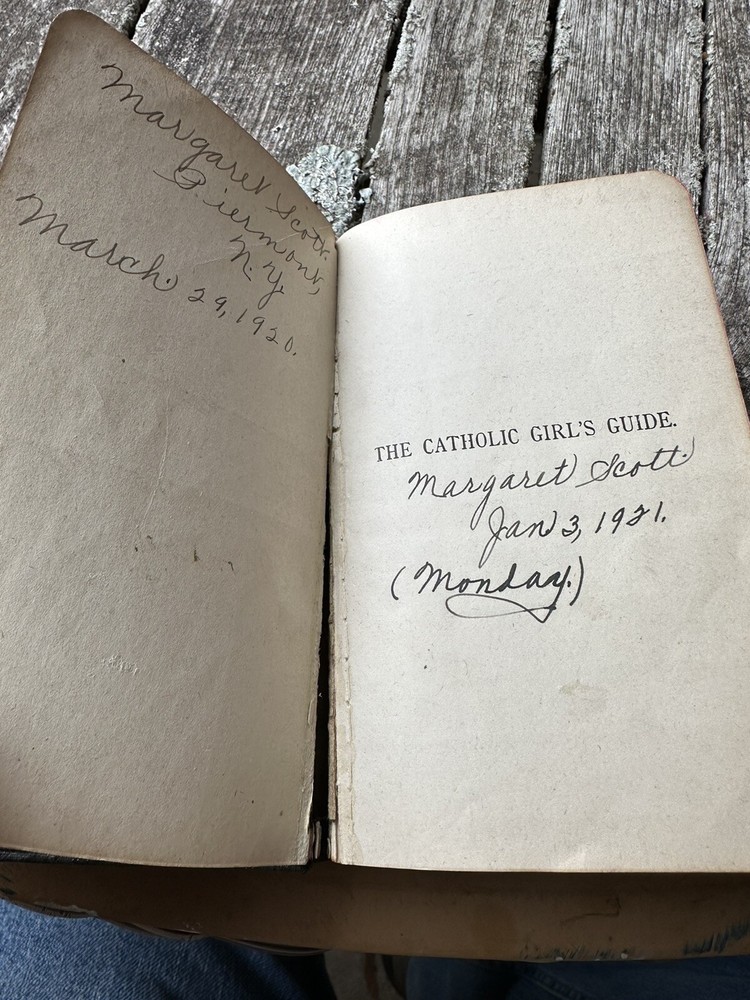 Margaret Scott.
Piermont,
N.Y.
March 29, 1920.
THE CATHOLIC GIRL'S GUIDE.
Margaret Scott
Jan 3, 1921.
(Monday.)